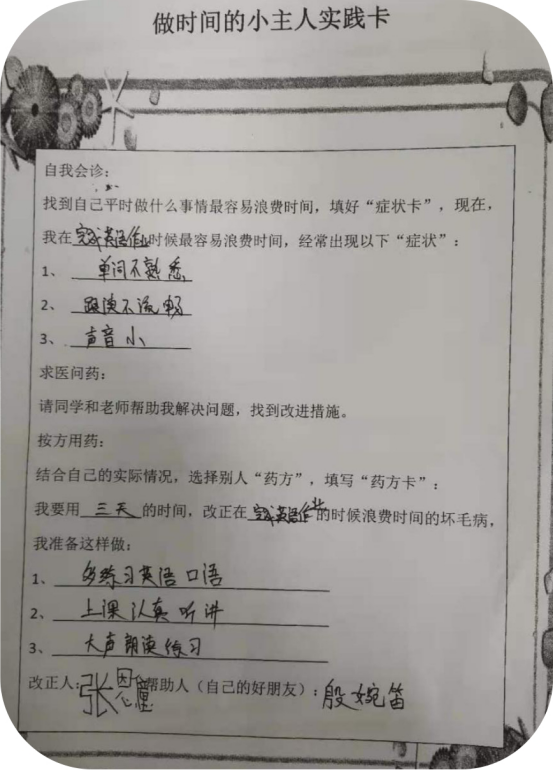 做时间的小主人实践卡
自我会诊:
找到自己平时做什么事情最容易浪费时间,填好“症状卡”,现在,
我在完成英语作业时候最容易浪费时间,经常出现以下“症状”:
1、 单词不熟悉
2、 跟读不流畅
3、 声音小
求医问药:
请同学和老师帮助我解决问题,找到改进措施。
按方用药:
结合自己的实际情况,选择别人“药方”,填写“药方卡”:
我要用 三天 的时间,改正在 完成英语作业的时候浪费时间的坏毛病,
我准备这样做:
1、 多练习英语口语
2、 上课认真听讲
3、 大声朗读练习
改正人:张恩 帮助人(自己的好朋友):殷婉笛